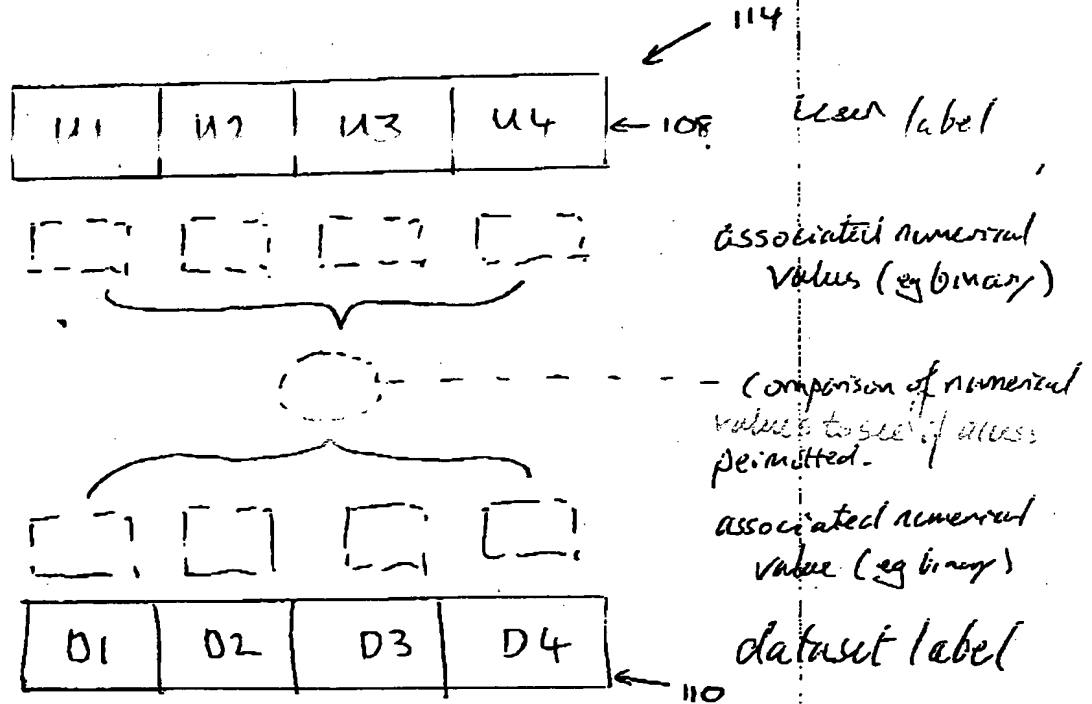 114
U1 U2 U3 U4 108 User label
associated numerical
values (eg binary)
Comparison of numerical
values to see if access
permitted.
associated numerical
value (eg binary)
D1 D2 D3 D4 dataset label
110